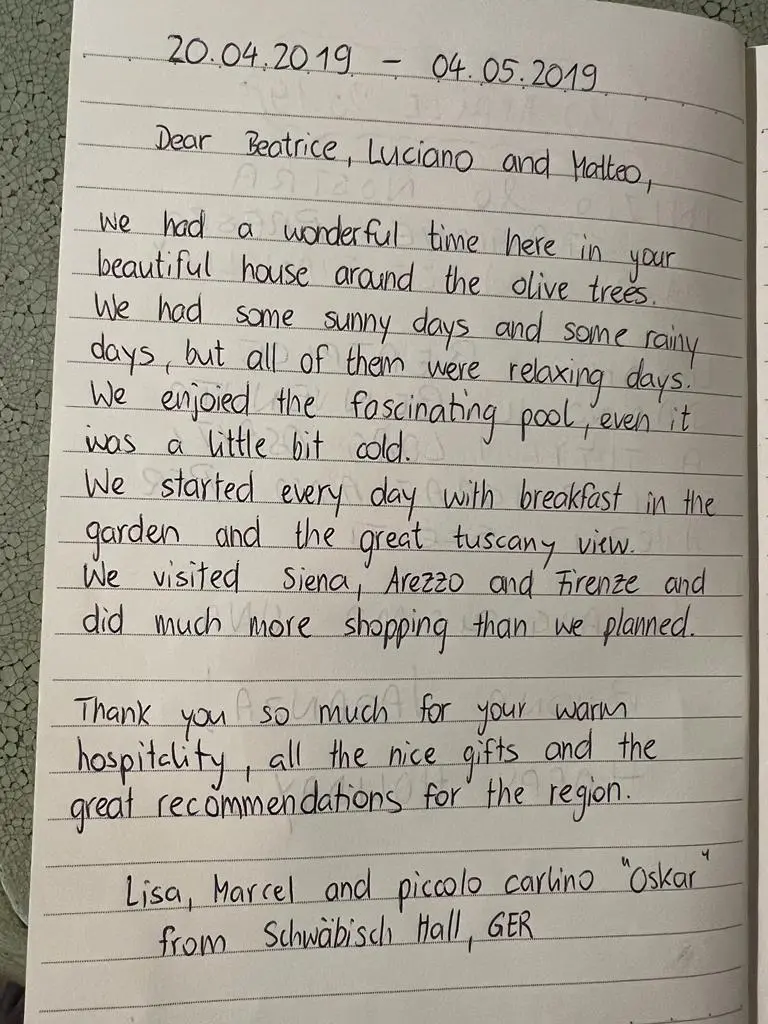 20.04.2019 - 04.05.2019
Dear Beatrice, Luciano and Matteo,
we had a wonderful time here in your
beautiful house around the olive trees.
We had some sunny days and some rainy
days, but all of them were relaxing days.
We enjoied the fascinating pool, even it
was a little bit cold.
We started every day with breakfast in the
garden and the great tuscany view.
We visited Siena, Arezzo and Firenze and
did much more shopping than we planned.
Thank you so much for your warm
hospitality, all the nice gifts and the
great recommendations for the region.
Lisa, Marcel and piccolo carlino "Oskar"
from Schwäbisch Hall, GER